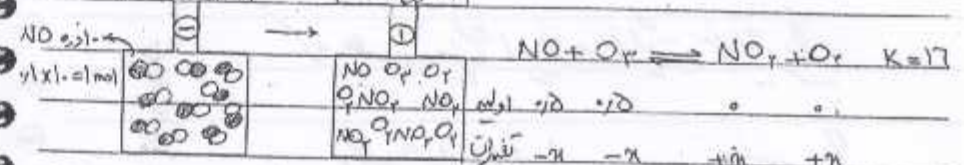 NO ذره ۱۰
۰/۱×۱۰=۱mol
NO O۳ O۲
O۲ NO۲ NO۲
NO۲ O۲ NO۲ O۲
NO + O۳ ⇌ NO۲ + O۲ K=۱۶
اولیه ۰/۵ ۰/۵ ۰ ۰
تغییرات -x -x +x +x